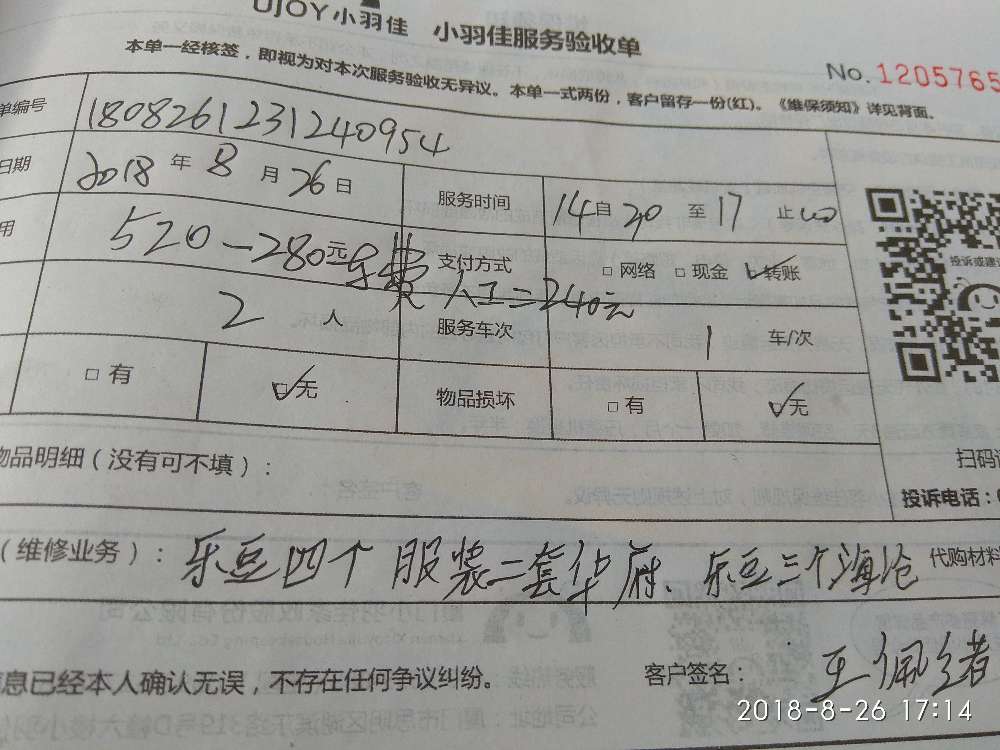 UJOY小羽佳 小羽佳服务验收单
本单一经核签，即视为对本次服务验收无异议。本单一式两份，客户留存一份(红)。《维保须知》详见背面。
No. 1205765
单编号 1808261231240954
日期 2018 年 8 月 26 日 服务时间 14 自 20 至 17 止 00
用 520-280元 费 人工=240元 支付方式 □ 网络 □ 现金 ☑ 转账
2 人 服务车次 1 车/次
□ 有 ☑ 无 物品损坏 □ 有 ☑ 无
投诉或建
扫码
物品明细（没有可不填）：
投诉电话：
（维修业务）： 乐豆四个 服装二套华府、乐豆三个海沧 代购材料
信息已经本人确认无误，不存在任何争议纠纷。 客户签名： 王佩
2018-8-26 17:14